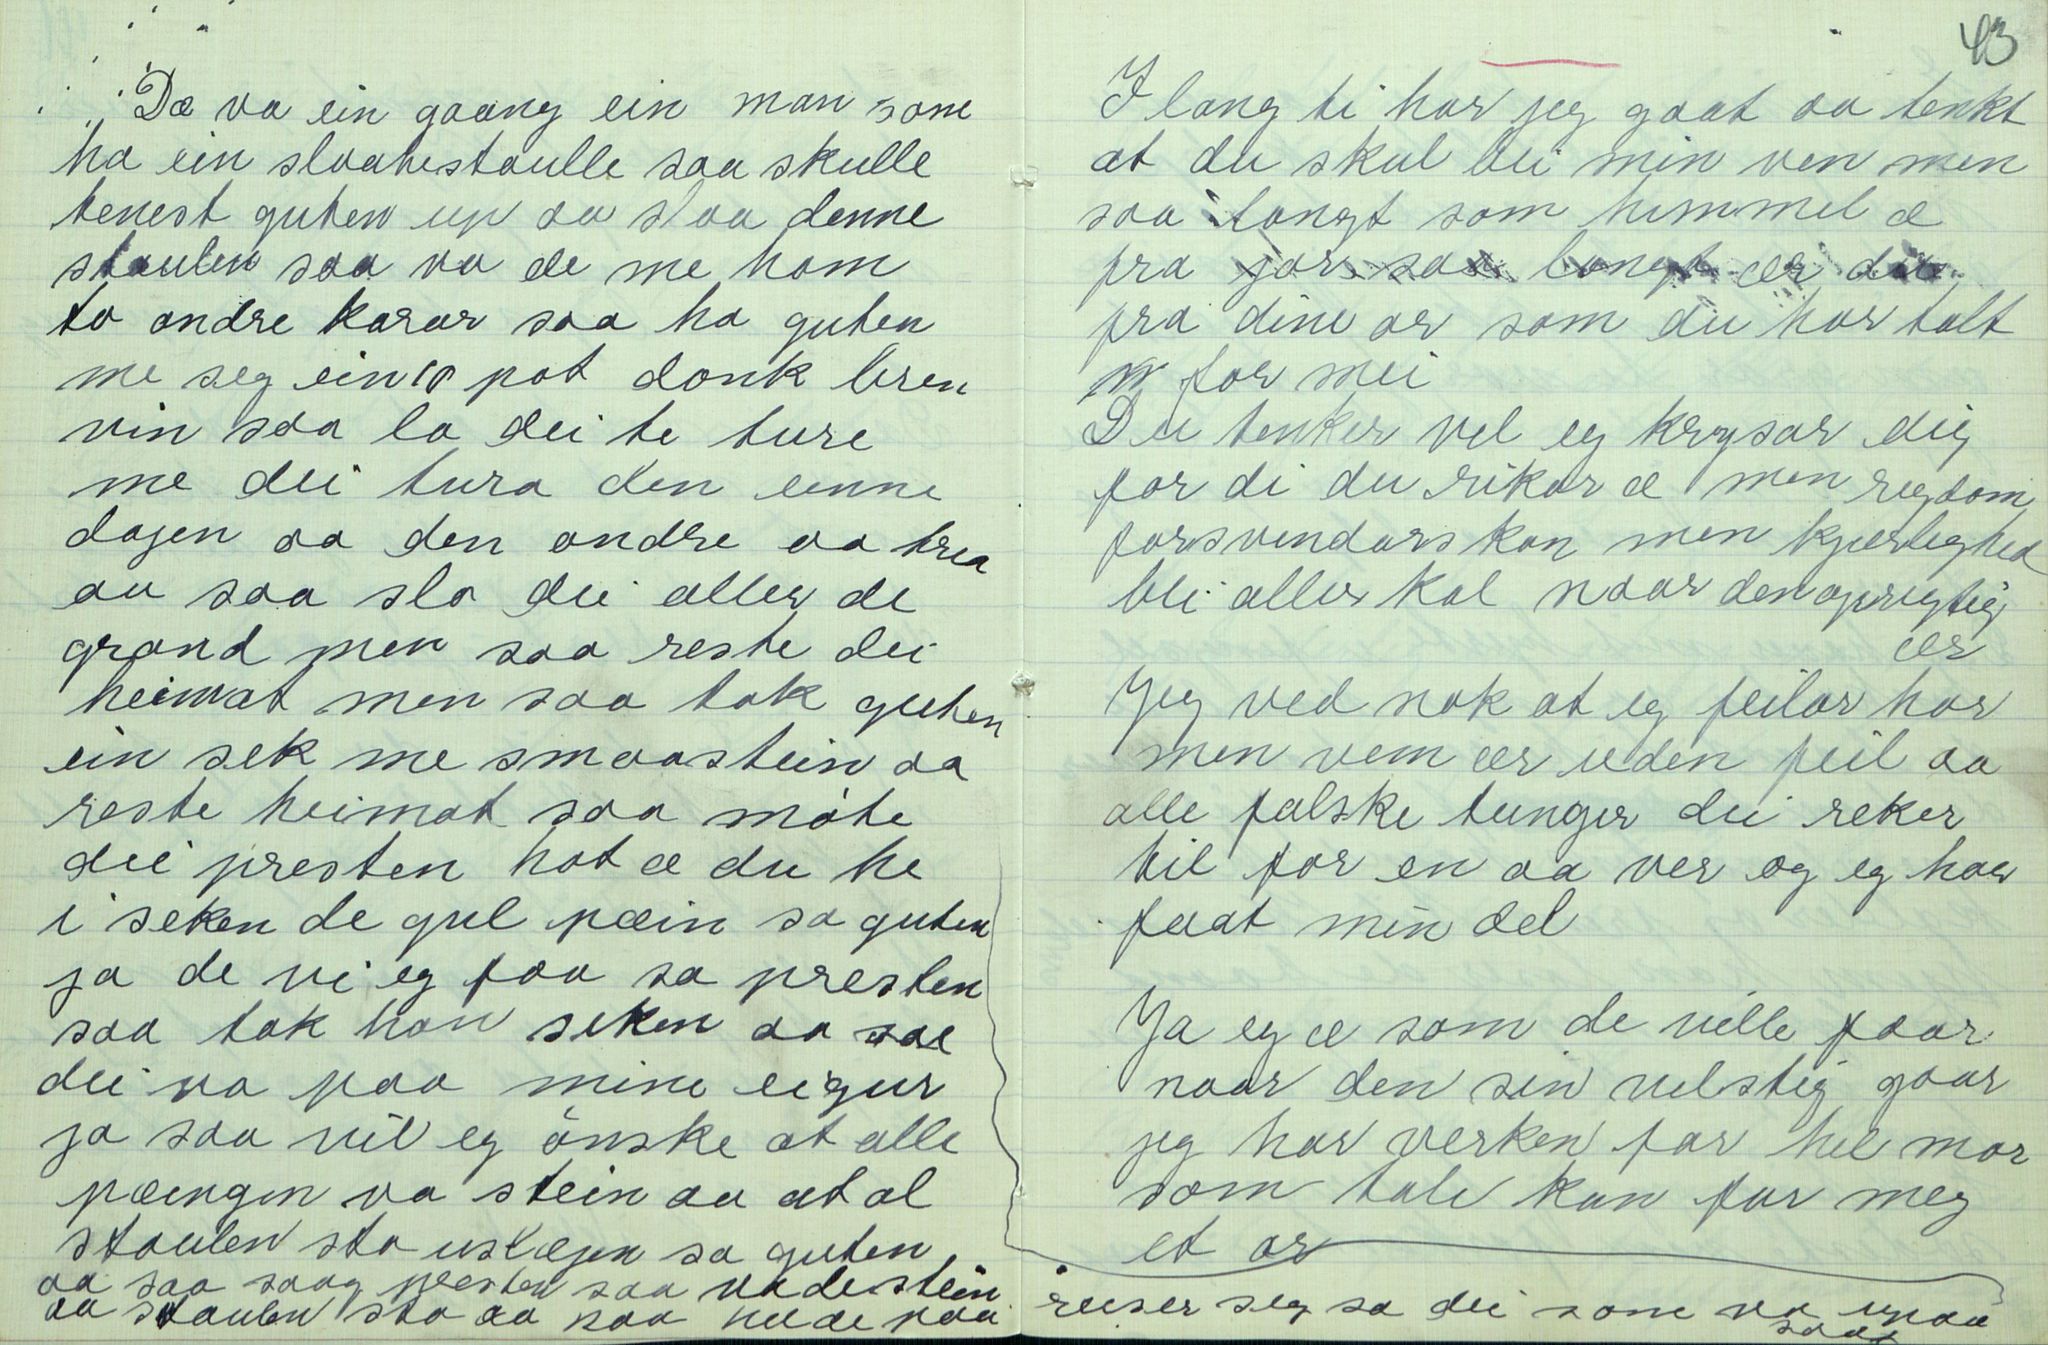 Dæ va ein gaang ein man some
ha ein slaatestaulle saa skulle
tenest guten up aa slaa denne
staulen saa va de me hom
to andre karar saa ha guten
me seg ein 10 pot donk bren
vin saa la dei te ture
me dei tura den einne
dagen aa den andre aa trea
aa saa slo dei aller de
grand men saa reste dei
heimat men saa tok guten
ein sek me smaastein aa
reste heimat saa møte
dei presten hot æ du he
i seken de gul pæin sa guten
ja de vi eg faa sa presten
saa tok han seken aa sae
dei va paa mine eigur
ja saa vil eg ønske at alle
pæingen va stein aa at al
staulen sto uslægen sa guten
aa saa saag presten saa va de stein
aa staulen sto aa naa heldt paa
43
I lang ti har jeg gaat aa tenkt
at du skul bli min ven men
saa langt som himmel æ
fra jor saa langt ær du
fra dine or som du har talt
for mei
Du tenker vel eg krysar dig
for di du rikar æ men regdom
forsvendars kan men kjærleghed
bli aller kal naar den oprigtig
ær
Jeg ved nok at eg feilar har
men vem ær uden feil aa
alle falske tunger dei reker
til for en aa ver og eg haer
faat min del
Ja eg æ som de ville faar
naar den sin velstig gaar
jeg har verken far hel mor
som tale kan for meg
et or
reiser seg sa dei some va upaa
saag